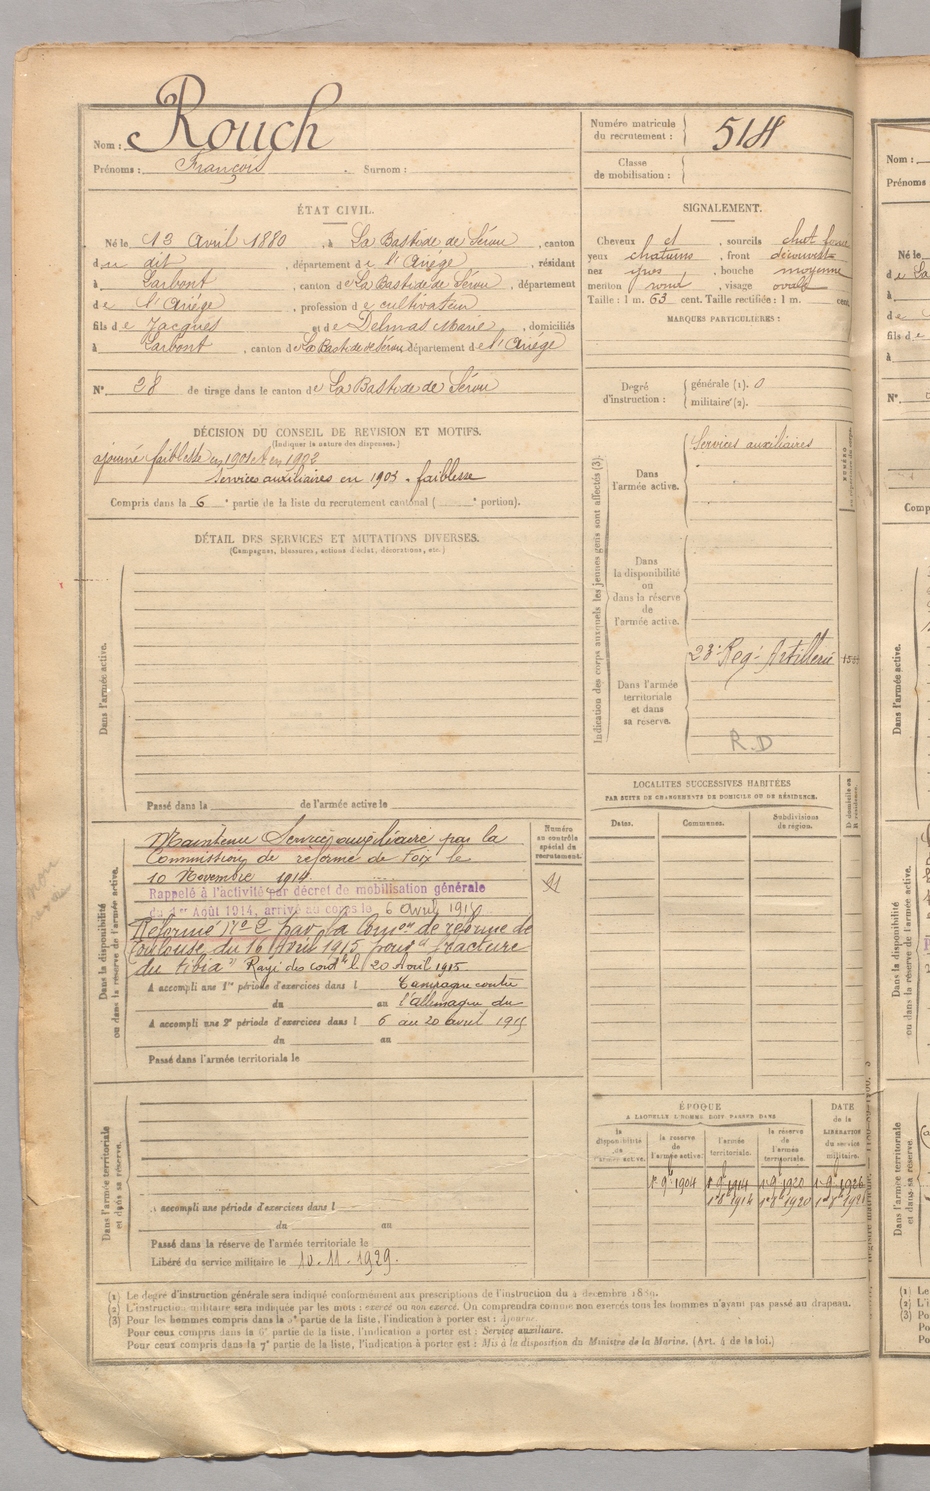 Nom : Rouch
Prénoms : François . Surnom :
Numéro matricule
du recrutement :
Classe
de mobilisation :
ÉTAT CIVIL.
Né le 13 Avril 1880 , à La Bastide de Sérou , canton
du dit , département de l'Ariége , résidant
à Larbont , canton de La Bastide de Sérou , département
de l'Ariége , profession de cultivateur
fils de Jacques et de Delmas Marie , domiciliés
à Larbont , canton de La Bastide de Sérou département de l'Ariége
N° 28 de tirage dans le canton de La Bastide de Sérou
DÉCISION DU CONSEIL DE REVISION ET MOTIFS.
(Indiquer la nature des dispenses.)
ajourné faiblesse en 1901 et en 1902
Services auxiliaires en 1903 . faiblesse
Compris dans la 6 e partie de la liste du recrutement cantonal ( e portion).
SIGNALEMENT.
Cheveux et , sourcils chat fonc
yeux chatains , front découvert
nez gros , bouche moyenne
menton rond , visage ovale
Taille : 1 m. 63 cent. Taille rectifiée : 1 m. cent.
MARQUES PARTICULIÈRES :
Degré
d'instruction :
générale (1). 0
militaire (2).
DÉTAIL DES SERVICES ET MUTATIONS DIVERSES.
(Campagnes, blessures, actions d'éclat, décorations, etc.)
Dans l'armée active.
Passé dans la de l'armée active le
Indication des corps auxquels les jeunes gens sont affectés (3).
Dans
l'armée active.
Services auxiliaires
Dans
la disponibilité
ou
dans la réserve
de
l'armée active.
23e Reg. Artillerie
Dans l'armée
territoriale
et dans
sa reserve.
R.D
Dans la disponibilité
ou dans la réserve de l'armée active.
Numéro
au contrôle
spécial du
recrutement.
Maintenu Service auxiliaire par la
Commission de réforme de Foix le
10 Novembre 1914
Rappelé à l'activité par décret de mobilisation générale
du 1er Août 1914, arrivé au corps le 6 avril 1915
Réformé N° 2 par la Comon de réforme de
Toulouse du 16 Avril 1915 pour "fracture
du tibia" Rayé des contles 20 Avril 1915
A accompli une 1re période d'exercices dans l
Campagne contre
du au
l'allemagne du
A accompli une 2e période d'exercices dans l
6 au 20 avril 1915
du au
Passé dans l'armée territoriale le
LOCALITES SUCCESSIVES HABITÉES
PAR SUITE DE CHANGEMENTS DE DOMICILE OU DE RÉSIDENCE.
Dates.
Communes.
Subdivisions
de région.
D. domicile ou
R. résidence.
ÉPOQUE
A LAQUELLE L'HOMME DOIT PASSER DANS
DATE
de la
LIBÉRATION
du service
militaire.
la
disponibilité
de
l'armée active.
la reserve
de
l'armée active.
l'armée
territoriale.
la réserve
de
l'armée
territoriale.
Dans l'armée territoriale
et dans sa réserve.
A accompli une période d'exercices dans l
du au
Passé dans la réserve de l'armée territoriale le
Libéré du service militaire le 10.11.1929.
(1) Le degré d'instruction générale sera indiqué conformément aux prescriptions de l'instruction du 4 décembre 1889.
(2) L'instruction militaire sera indiquée par les mots : exercé ou non exercé. On comprendra comme non exercés tous les hommes n'ayant pas passé au drapeau.
(3) Pour les hommes compris dans la 5e partie de la liste, l'indication à porter est : Ajourné.
Pour ceux compris dans la 6e partie de la liste, l'indication à porter est : Service auxiliaire.
Pour ceux compris dans la 7e partie de la liste, l'indication à porter est : Mis à la disposition du Ministre de la Marine. (Art. 4 de la loi.)